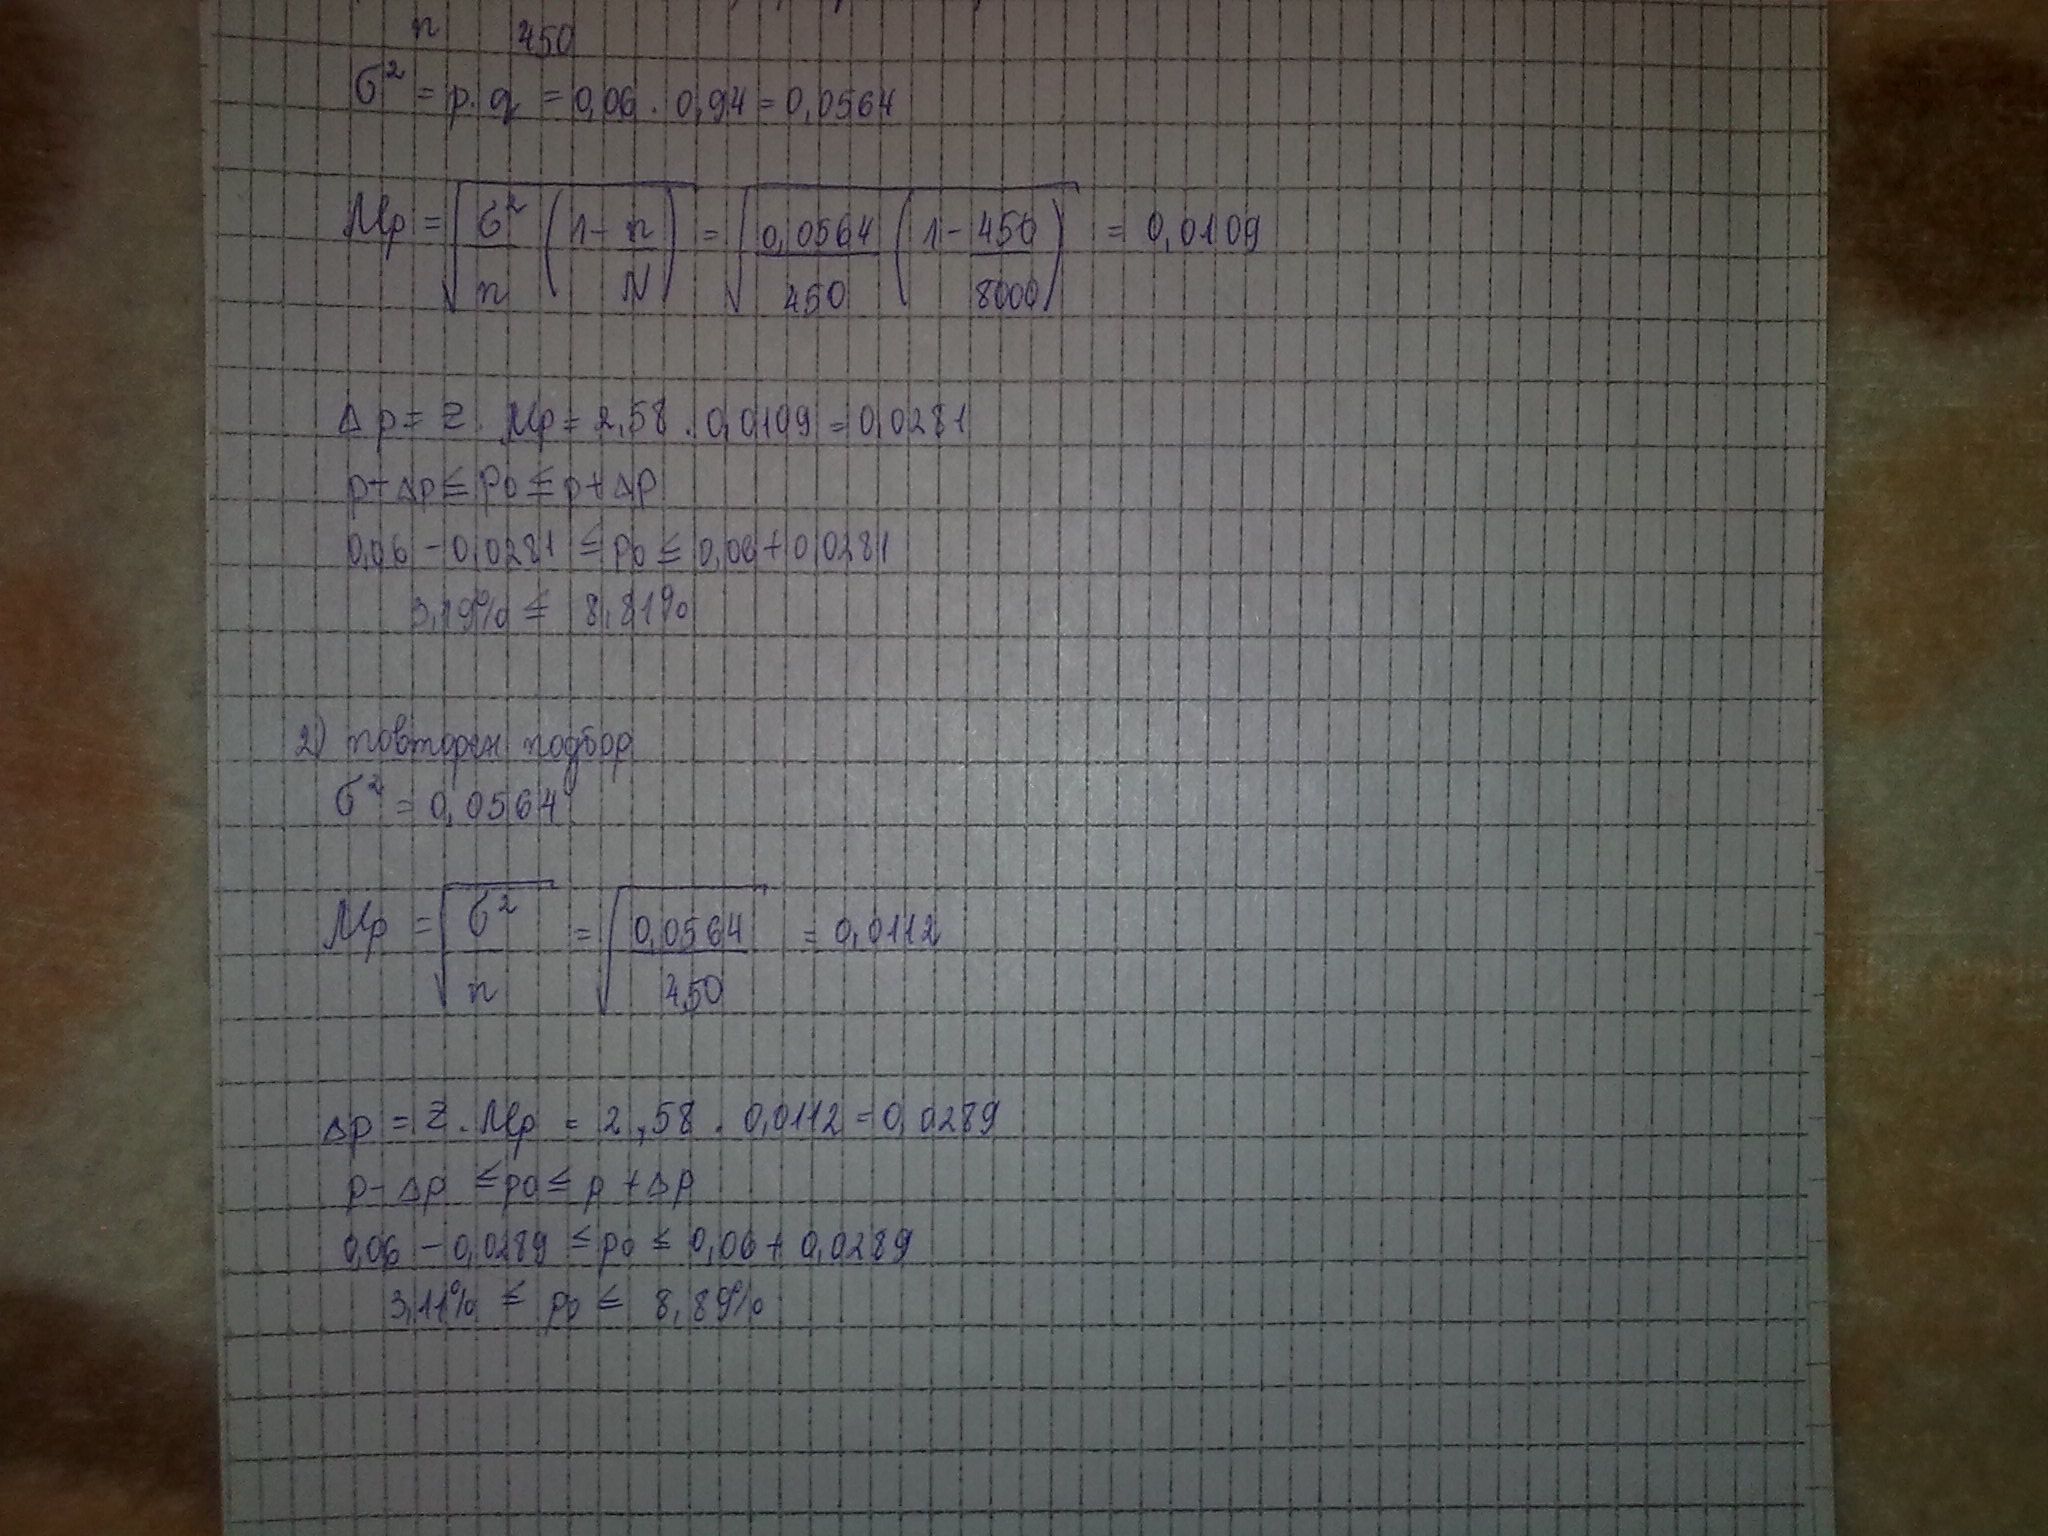 n 450
σ² = p . q = 0,06 . 0,94 = 0,0564
Mp = √(σ²/n (1 - n/N)) = √(0,0564/450 (1 - 450/8000)) = 0,0109
Δp = z . Mp = 2,58 . 0,0109 = 0,0281
p + Δp ≤ po ≤ p + Δp
0,06 - 0,0281 ≤ po ≤ 0,06 + 0,0281
3,19% ≤ 8,81%
2) повторен подбор
σ² = 0,0564
Mp = √(σ²/n) = √(0,0564/450) = 0,0112
Δp = z . Mp = 2,58 . 0,0112 = 0,0289
p - Δp ≤ po ≤ p + Δp
0,06 - 0,0289 ≤ po ≤ 0,06 + 0,0289
3,11% ≤ po ≤ 8,89%